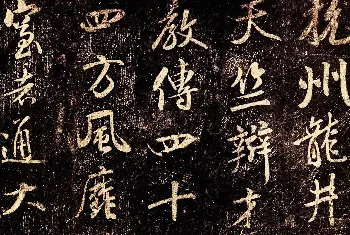 杭州龍井
天竺辯才
教傳四十
四方風靡
室者通大